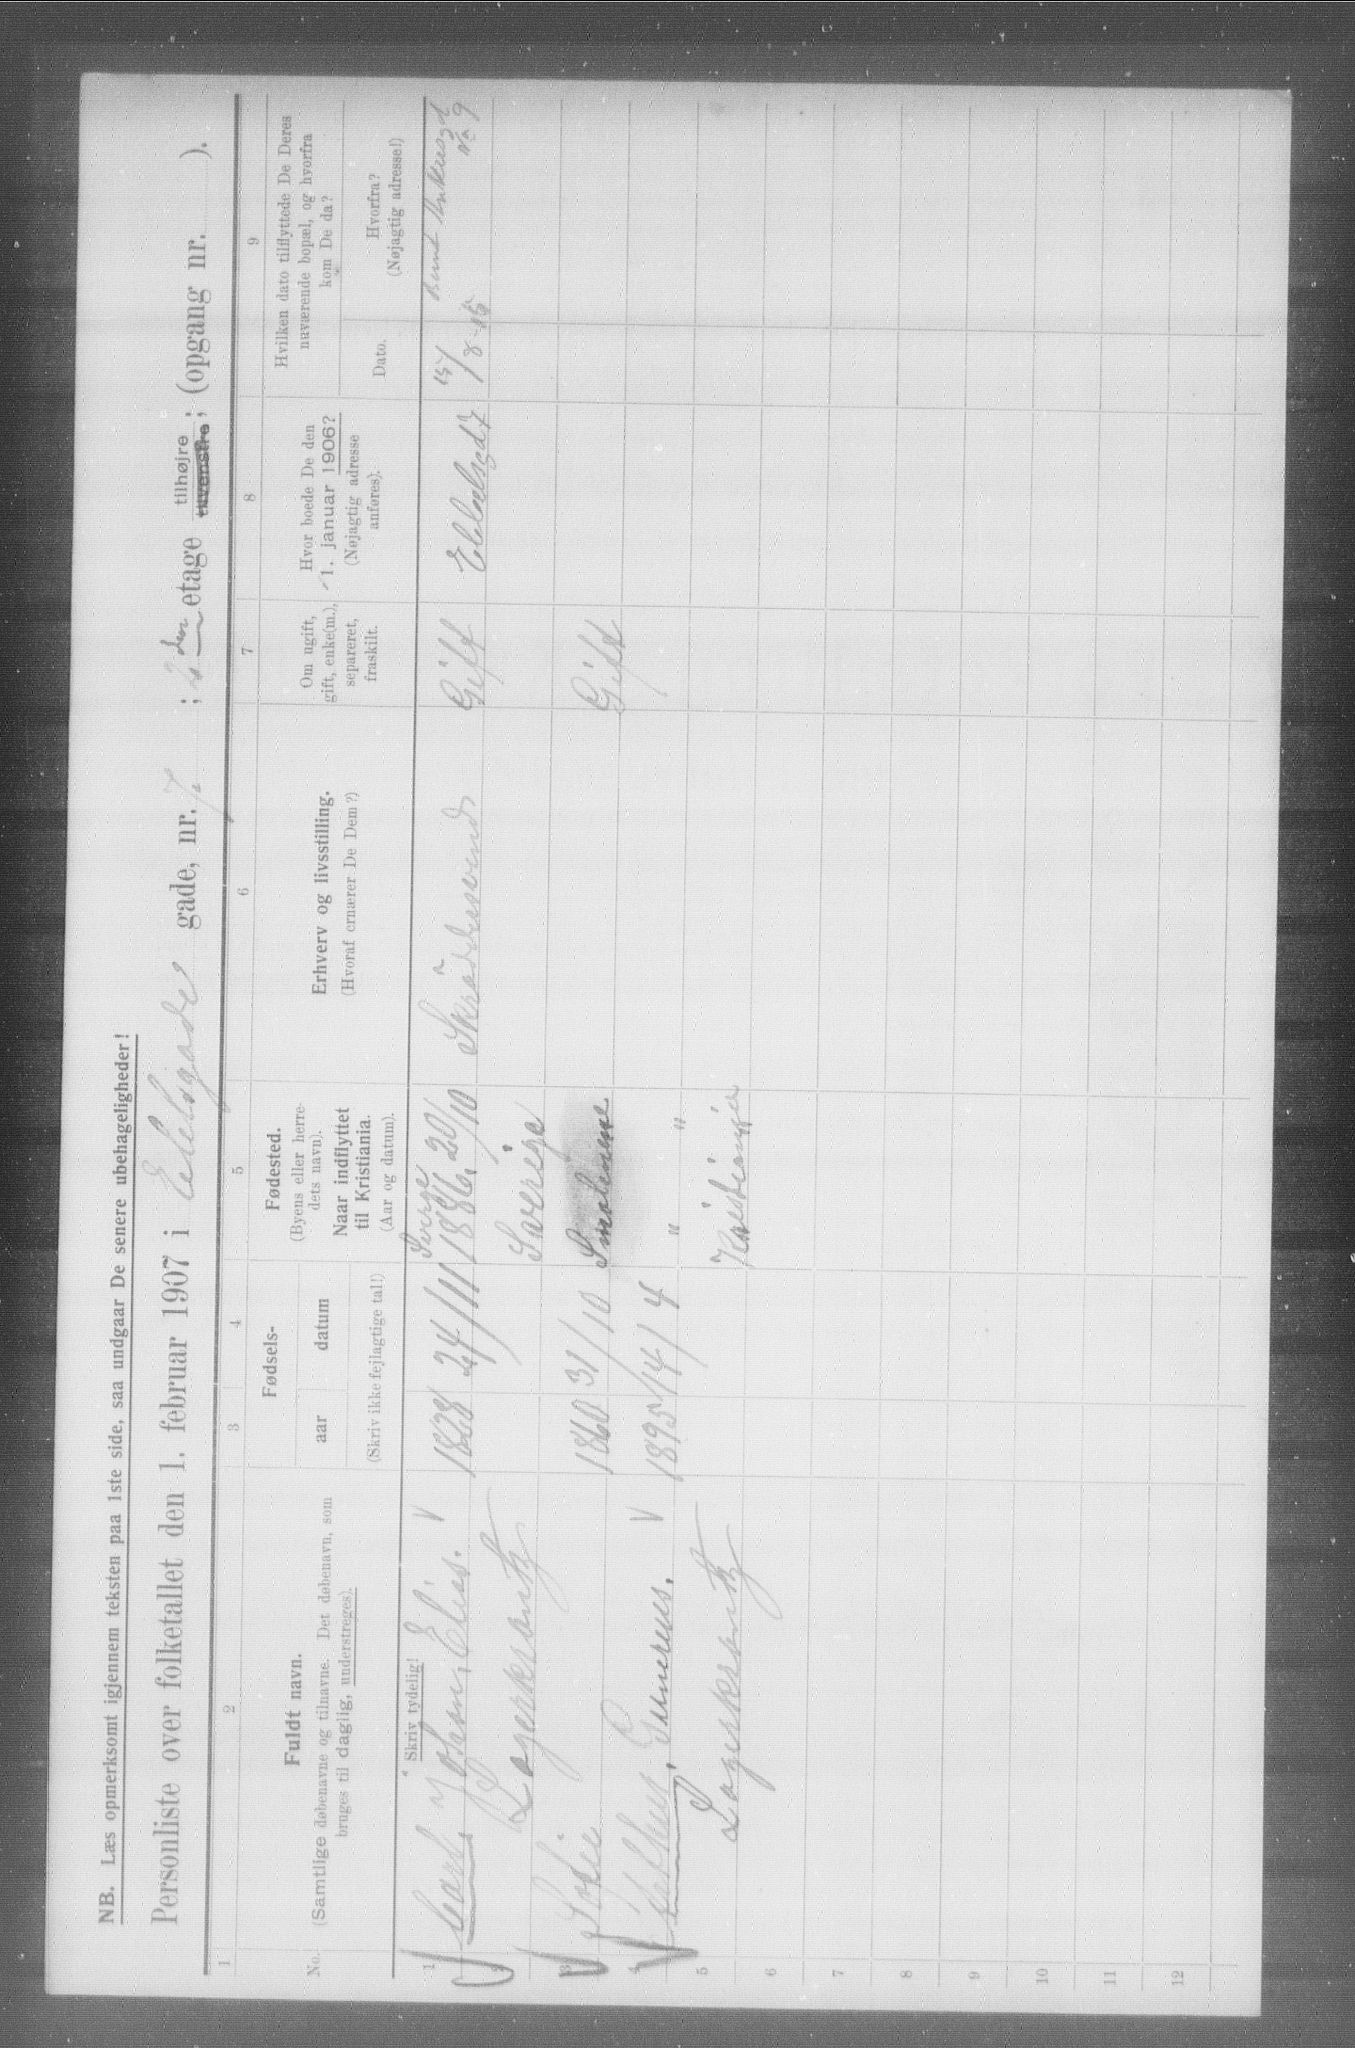 NB. Læs opmerksomt igjennem teksten paa 1ste side, saa undgaar De senere ubehageligheder!
Personliste over folketallet den 1. februar 1907 i Edelsgade gade, nr. 7 ; 2den etage tilhøjre tilvenstre ; (opgang nr. ).
1 2 3 4 5 6 7 8 9
No.
Fuldt navn.
(Samtlige døbenavne og tilnavne. Det døbenavn, som
bruges til daglig, understreges).
Fødsels-
aar datum
(Skriv ikke fejlagtige tal!)
Fødested.
(Byens eller herre-
dets navn).
Naar indflyttet
til Kristiania.
(Aar og datum).
Erhverv og livsstilling.
(Hvoraf ernærer De Dem?)
Om ugift,
gift, enke(m.),
separeret,
fraskilt.
Hvor boede De den
1. januar 1906?
(Nøjagtig adresse
anføres).
Hvilken dato tilflyttede De Deres
nuværende bopæl, og hvorfra
kom De da?
Dato.
Hvorfra?
(Nøjagtig adresse!)
Skriv tydelig!
1 Carl Johan Elias. 24/11 Sverige 1886 20/10 Gift No 9
2 Lagerkrantz Sverige
3 1860 31/10 Smalenene Gift
4 Gunerius. 1895 14/4 " "
5 Lagerkrantz Kristiania
6
7
8
9
10
11
12